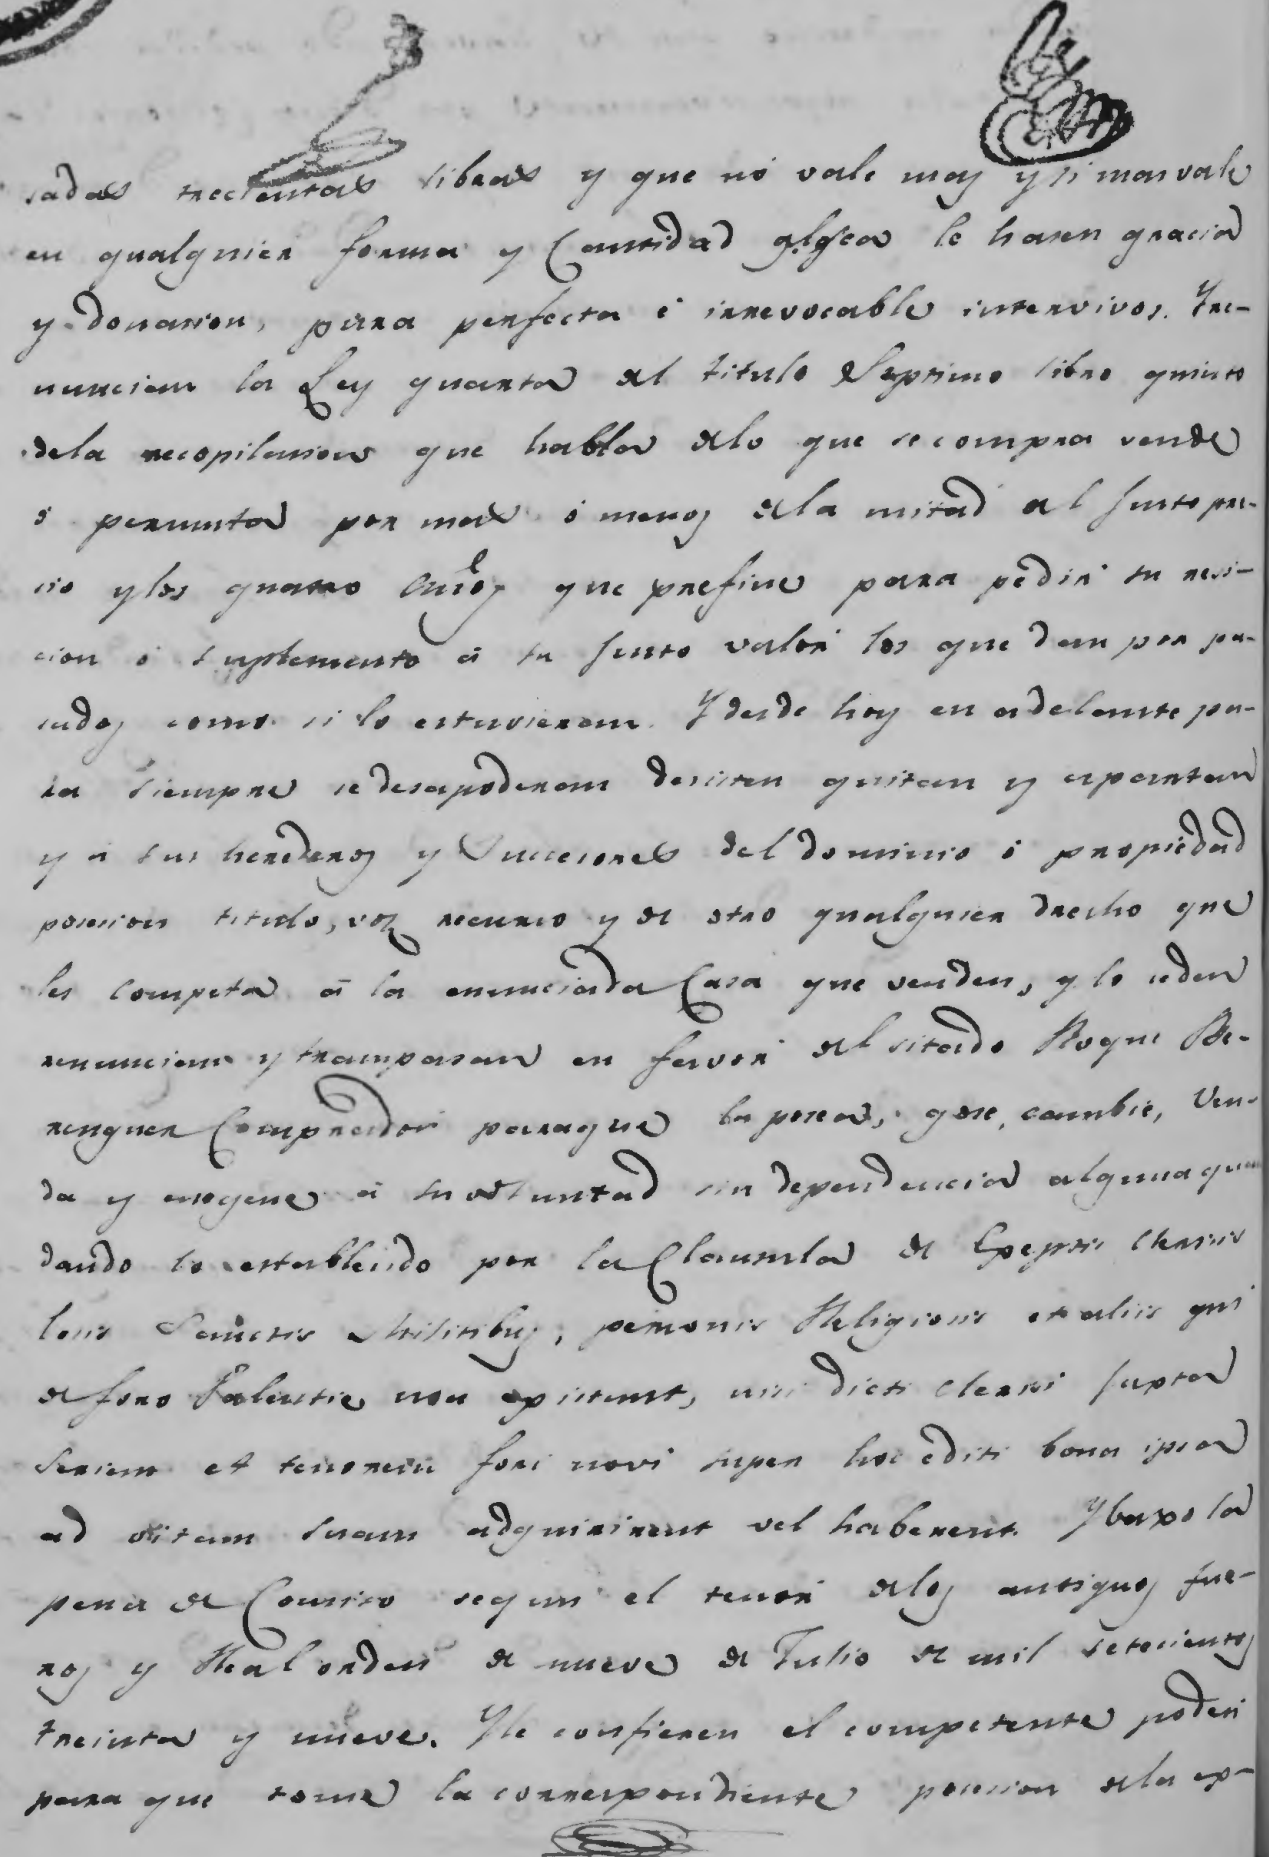 sadas trecientas libras y que nó vale mas y si mas vale
en qualquier forma y Cantidad q.e sea le hasen gracia
y donasion, pura perfecta é irrevocable intervivos. Y re-
nuncian la Ley quarta del titulo Septimo libro quinto
dela recopilasion que habla delo que se compra vende
ó permuta por mas ó menos dela mitad del Justo pre-
sio y los quatro años que prefine para pedir su resi-
cion ó suplemento á su Justo valor los que dan por pa-
sados como si lo estuvieran. Y desde hoy en adelante pa-
ra siempre se desapoderan desisten quitan y apartan
y á sus herederos y Sucesores del dominio ó propiedad
posesion titulo, voz recurso y de otro qualquier drecho que
les competa á la enunciada Casa que venden, y lo seden
renuncian y traspasan en favor del sitado Roque Be-
renguer Comprador paraque la posea, gose, cambie, Ven-
da y enagene á su voluntad sin dependencia alguna guar
dando lo establesido por la Clausula de Exepsis Clerisis
losis Sanctis Militibus, personis Religiosis et aliis qui
de foro Valentie non existunt, nisi dicti clerisi Juxta
seriem et tenorem fori novi super hoc editi bona ipsa
ad vitam suam adquirirent vel haberent. Y baxo la
pena de Comiso segun el tenor delos antiguos fue-
ros y Real orden de nueve de Julio de mil setecientos
treinta y nueve. Y le confieren el competente poder
para que tome la correspondiente posesion dela ex-